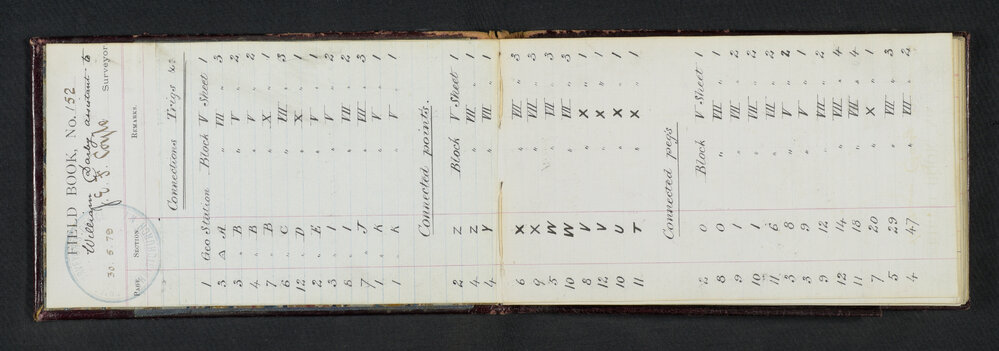 FIELD BOOK, No. 152
William Darby assistant to
J. E. F. Coyle Surveyor
30.6.79
PAGE. SECTION. REMARKS.
Connections Trigs &c.
1 Geo Station Block V Sheet 1
3 Δ A " VII " 3
3 " B " V " 2
4 " B " V " 2
7 " B " X " 1
6 " C " VII " 3
12 " D " X " 1
2 " E " V " 1
3 " I " V " 2
8 " I " VII " 2
7 " J " VII " 3
1 " K " V " 1
1 " K " V " 1
Connected points.
2 Z Block V Sheet 1
4 Z " VII " 1
4 Y " VII " 1
6 X " VII " 3
9 X " VII " 3
5 W " VII " 3
10 W " VII " 3
8 V " X " 1
12 V " X " 1
10 U " X " 1
11 T " X " 1
Connected pegs
2 0 Block V Sheet 1
8 0 " VII " 1
9 1 " VII " 2
10 1 " VII " 2
11 6 " VII " 2
3 8 " V " 2
3 9 " V " 1
9 12 " VII " 2
12 14 " VII " 4
11 18 " VII " 4
7 20 " X " 1
5 29 " VII " 3
4 47 " VII " 2